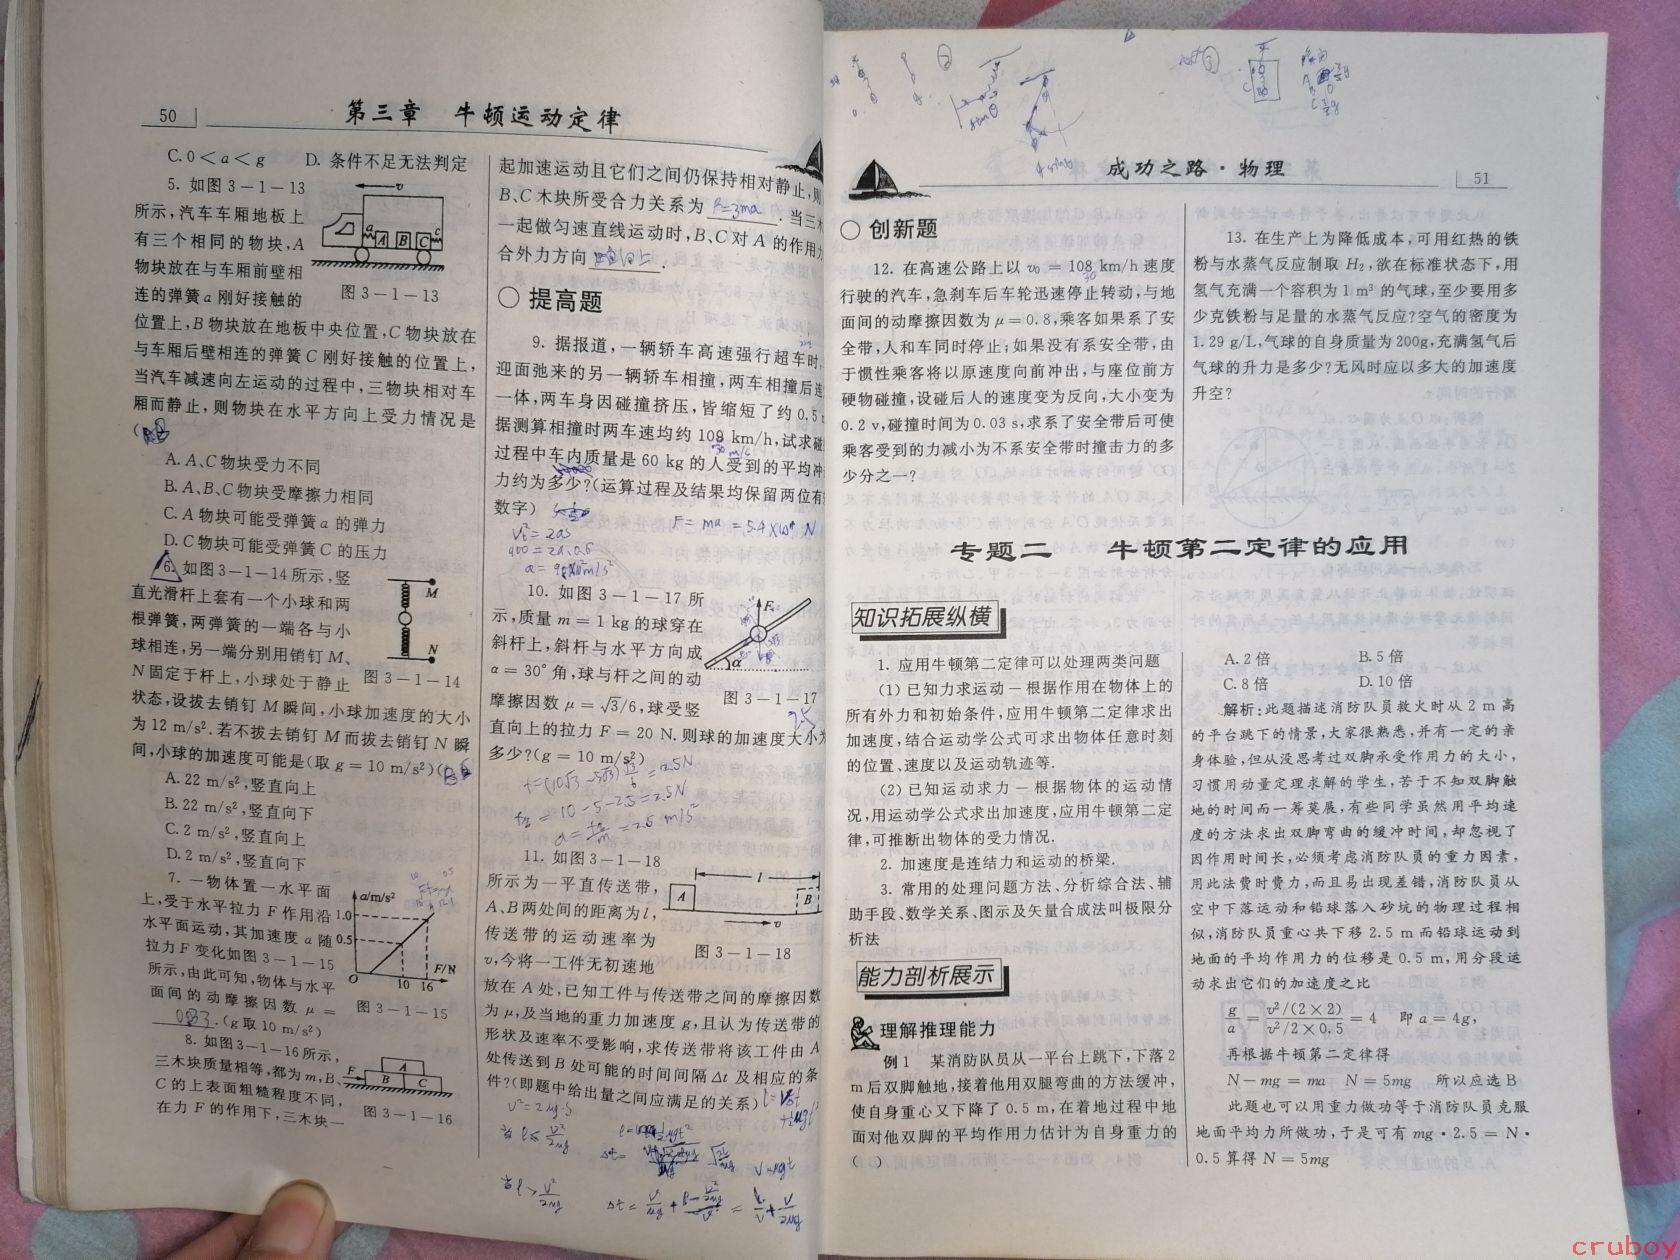 50
第三章 牛顿运动定律
C. 0＜a＜g D. 条件不足无法判定
5. 如图 3－1－13
所示，汽车车厢地板上
有三个相同的物块，A
物块放在与车厢前壁相
连的弹簧 a 刚好接触的
v
a A B C c
图 3－1－13
位置上，B 物块放在地板中央位置，C 物块放在
与车厢后壁相连的弹簧 C 刚好接触的位置上，
当汽车减速向左运动的过程中，三物块相对车
厢而静止，则物块在水平方向上受力情况是
(
A. A、C 物块受力不同
B. A、B、C 物块受摩擦力相同
C. A 物块可能受弹簧 a 的弹力
D. C 物块可能受弹簧 C 的压力
6. 如图 3－1－14 所示，竖
直光滑杆上套有一个小球和两
根弹簧，两弹簧的一端各与小
球相连，另一端分别用销钉 M、
N 固定于杆上，小球处于静止
M
N
图 3－1－14
状态，设拔去销钉 M 瞬间，小球加速度的大小
为 12 m/s². 若不拔去销钉 M 而拔去销钉 N 瞬
间，小球的加速度可能是(取 g＝10 m/s²)(
A. 22 m/s²，竖直向上
B. 22 m/s²，竖直向下
C. 2 m/s²，竖直向上
D. 2 m/s²，竖直向下
7. 一物体置一水平面
上，受于水平拉力 F 作用沿
水平面运动，其加速度 a 随
拉力 F 变化如图 3－1－15
所示，由此可知，物体与水平
面间的动摩擦因数 μ＝
. (g 取 10 m/s²)
a/m/s²
1.0
0.5
O 10 16 F/N
图 3－1－15
8. 如图 3－1－16 所示，
三木块质量相等，都为 m，B、
C 的上表面粗糙程度不同，
在力 F 的作用下，三木块一
F B A C
图 3－1－16
起加速运动且它们之间仍保持相对静止，则
B、C 木块所受合力关系为 F=3ma . 当三木
一起做匀速直线运动时，B、C 对 A 的作用力
合外力方向 .
○ 提高题
9. 据报道，一辆轿车高速强行超车时，
迎面驰来的另一辆轿车相撞，两车相撞后连
一体，两车身因碰撞挤压，皆缩短了约 0.5
据测算相撞时两车速均约 108 km/h，试求碰
30 m/s
过程中车内质量是 60 kg 的人受到的平均冲
力约为多少?(运算过程及结果均保留两位有
数字)
F = ma = 5.4×10⁴ N
10. 如图 3－1－17 所
示，质量 m＝1 kg 的球穿在
斜杆上，斜杆与水平方向成
α＝30° 角，球与杆之间的动
摩擦因数 μ＝√3/6，球受竖
F
α
图 3－1－17
直向上的拉力 F＝20 N. 则球的加速度大小为
2.5
多少?(g＝10 m/s²)
= 10 - 5 - 2.5 = 2.5N
= 2.5 m/s²
11. 如图 3－1－18
所示为一平直传送带，
A、B 两处间的距离为 l，
传送带的运动速率为
v，今将一工件无初速地
A l B
v
图 3－1－18
放在 A 处，已知工件与传送带之间的摩擦因数
为 μ，及当地的重力加速度 g，且认为传送带的
形状及速率不受影响，求传送带将该工件由 A
处传送到 B 处可能的时间间隔 Δt 及相应的条
件?(即题中给出量之间应满足的关系)
成功之路·物理
51
○ 创新题
12. 在高速公路上以 v₀＝108 km/h 速度
30
行驶的汽车，急刹车后车轮迅速停止转动，与地
面间的动摩擦因数为 μ＝0.8，乘客如果系了安
全带，人和车同时停止；如果没有系安全带，由
于惯性乘客将以原速度向前冲出，与座位前方
硬物碰撞，设碰后人的速度变为反向，大小变为
0.2 v，碰撞时间为 0.03 s，求系了安全带后可使
乘客受到的力减小为不系安全带时撞击力的多
少分之一?
13. 在生产上为降低成本，可用红热的铁
粉与水蒸气反应制取 H₂，欲在标准状态下，用
氢气充满一个容积为 1 m³ 的气球，至少要用多
少克铁粉与足量的水蒸气反应?空气的密度为
1.29 g/L，气球的自身质量为 200g，充满氢气后
气球的升力是多少?无风时应以多大的加速度
升空?
专题二 牛顿第二定律的应用
知识拓展纵横
1. 应用牛顿第二定律可以处理两类问题
(1) 已知力求运动－根据作用在物体上的
所有外力和初始条件，应用牛顿第二定律求出
加速度，结合运动学公式可求出物体任意时刻
的位置、速度以及运动轨迹等.
(2) 已知运动求力－根据物体的运动情
况，用运动学公式求出加速度，应用牛顿第二定
律，可推断出物体的受力情况.
2. 加速度是连结力和运动的桥梁.
3. 常用的处理问题方法、分析综合法、辅
助手段、数学关系、图示及矢量合成法叫极限分
析法
能力剖析展示
理解推理能力
例 1 某消防队员从一平台上跳下，下落 2
m 后双脚触地，接着他用双腿弯曲的方法缓冲，
使自身重心又下降了 0.5 m，在着地过程中地
面对他双脚的平均作用力估计为自身重力的
( )
A. 2 倍 B. 5 倍
C. 8 倍 D. 10 倍
解析：此题描述消防队员救火时从 2 m 高
的平台跳下的情景，大家很熟悉，并有一定的亲
身体验，但从没思考过双脚承受作用力的大小，
习惯用动量定理求解的学生，苦于不知双脚触
地的时间而一筹莫展，有些同学虽然用平均速
度的方法求出双脚弯曲的缓冲时间，却忽视了
因作用时间长，必须考虑消防队员的重力因素，
用此法费时费力，而且易出现差错，消防队员从
空中下落运动和铅球落入砂坑的物理过程相
似，消防队员重心共下移 2.5 m 而铅球运动到
地面的平均作用力的位移是 0.5 m，用分段运
动求出它们的加速度之比
g/a＝v²/(2×2) / v²/2×0.5＝4 即 a＝4g，
再根据牛顿第二定律得
N－mg＝ma N＝5mg 所以应选 B
此题也可以用重力做功等于消防队员克服
地面平均力所做功，于是可有 mg·2.5＝N·
0.5 算得 N＝5mg
cruboy